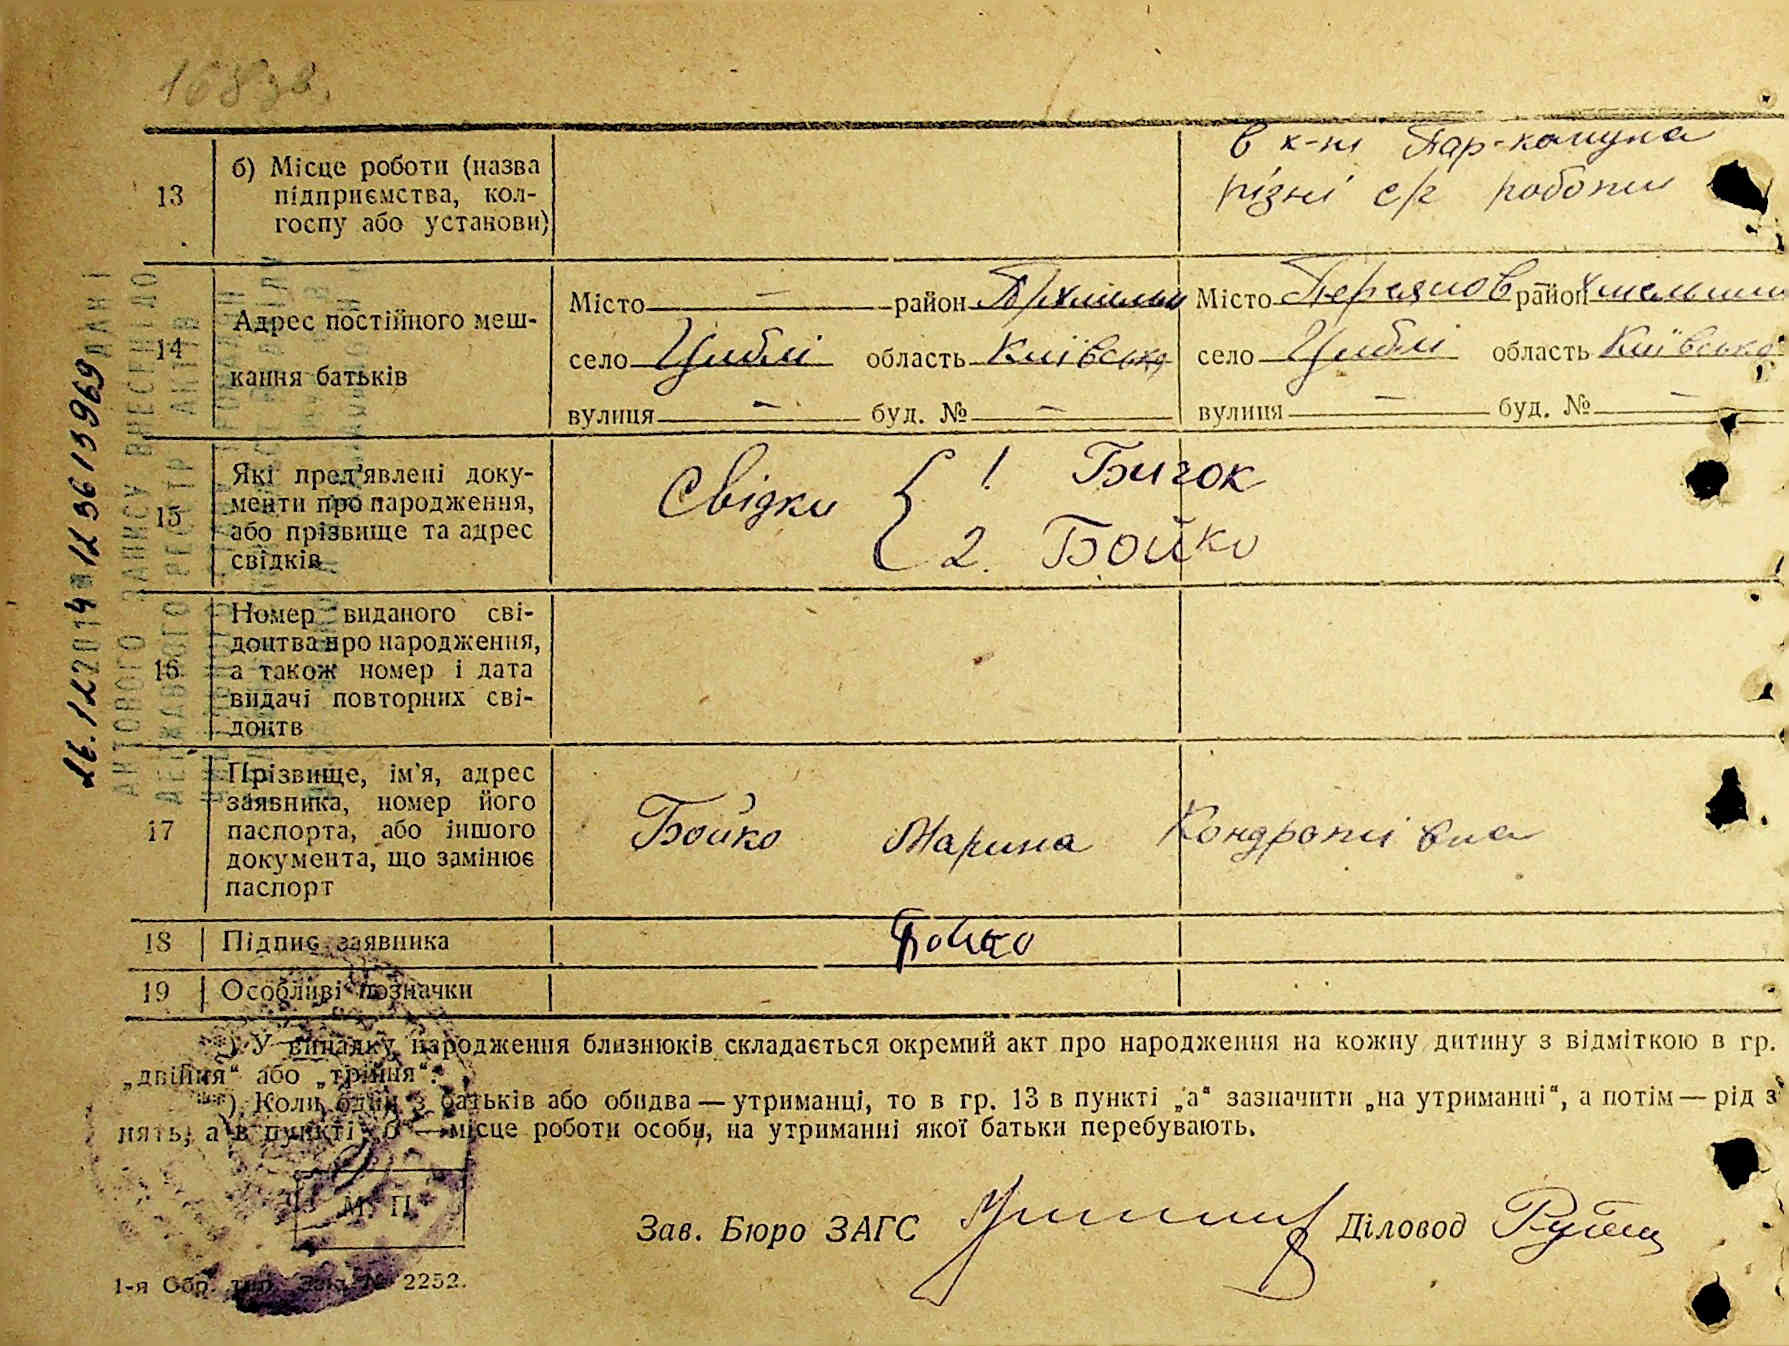 168 зв.
13
б) Місце роботи (назва підприємства, кол-
госпу або установи)
в к-пі Пар-комуна
різні с/г роботи
14
Адрес постійного меш-
кання батьків
Місто — район
село Циблі область Київська
вулиця — буд. № —
Місто район
село Циблі область Київська
вулиця — буд. № —
15
Які пред'явлені доку-
менти про народження,
або прізвище та адрес
свідків
Свідки { 1 Бичок
2. Бойко
16
Номер виданого сві-
доцтва про народження,
а також номер і дата
видачі повторних сві-
доцтв
17
Прізвище, ім'я, адрес
заявника, номер його
паспорта, або іншого
документа, що замінює
паспорт
Бойко Марина Кондратівна
18 Підпис заявника
Бойко
19 Особливі позначки
*) У випадку народження близнюків складається окремий акт про народження на кожну дитину з відміткою в гр.
„двійня“ або „трійня“.
**) Коли один з батьків або обидва — утриманці, то в гр. 13 в пункті „а“ зазначити „на утриманні“, а потім — рід з
нять, а в пункті „б“ — місце роботи особи, на утриманні якої батьки перебувають.
М. П.
Зав. Бюро ЗАГС Діловод
1-я Обр. тип. Зак. № 2252.
ДАНІ
АКТОВОГО ЗАПИСУ ВНЕСЕНО ДО
ДЕРЖАВНОГО РЕЄСТРУ АКТІВ